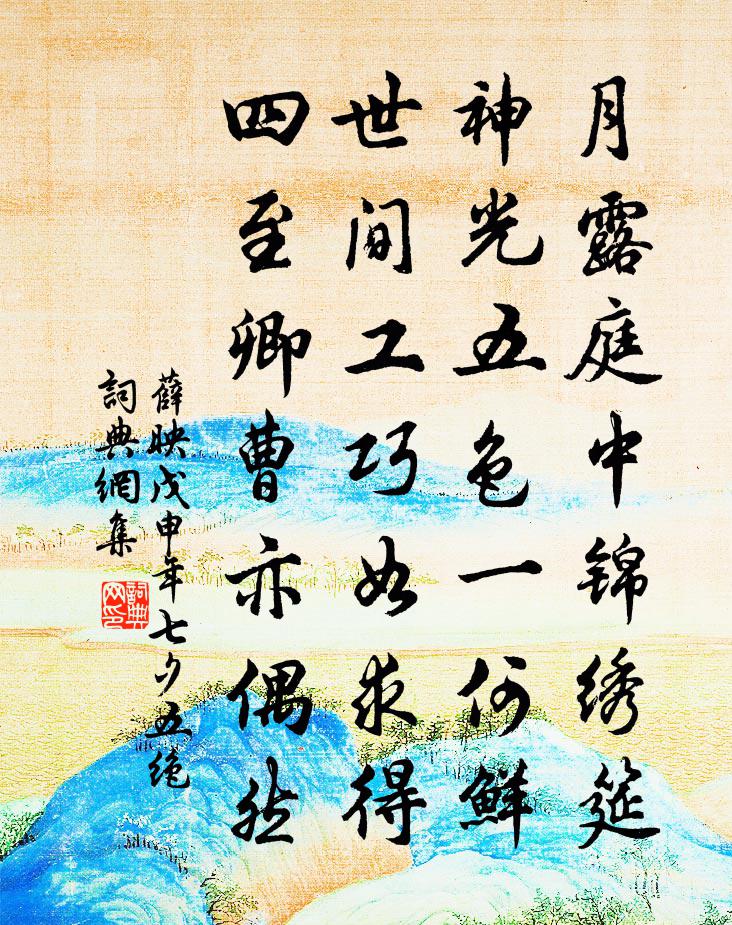 月露庭中锦绣筵
神光五色一何鲜
世间工巧如求得
四至卿曹亦偶然
薛映戊申年七夕五绝
詞典網集
詞典网印